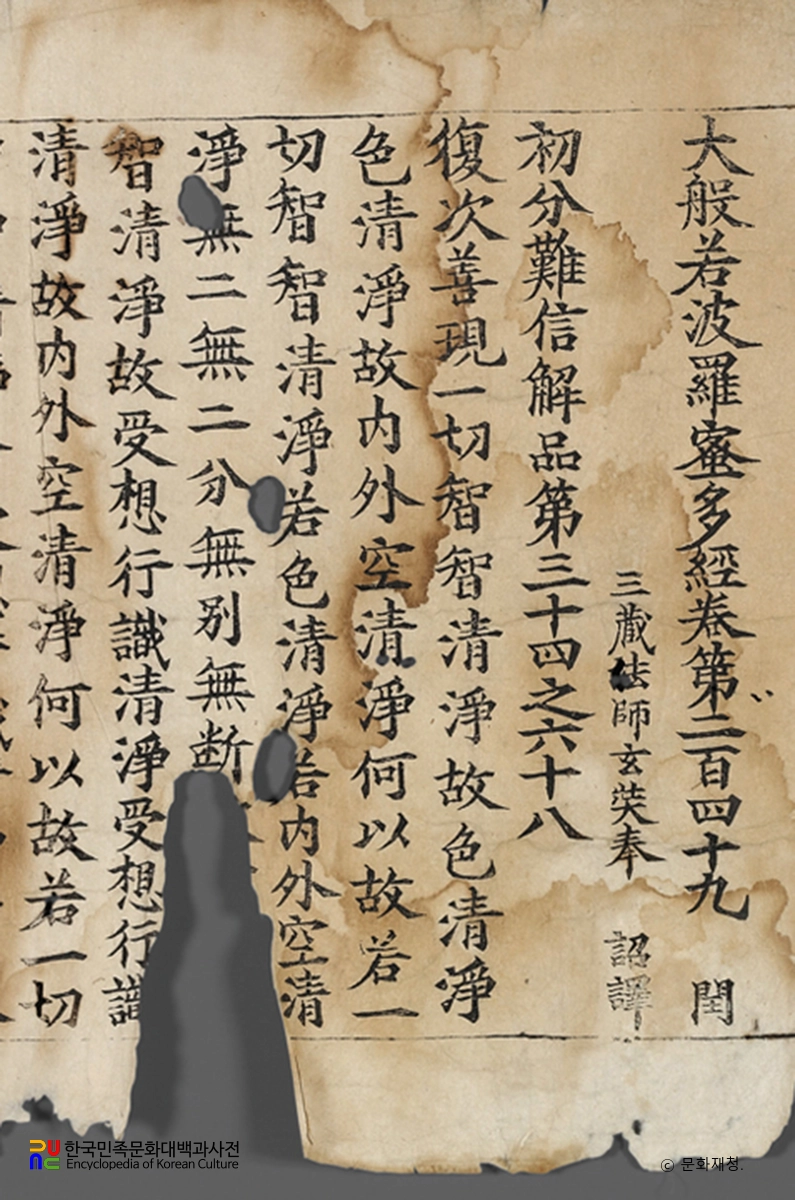 大般若波羅蜜多經卷第二百四十九 閏
三藏法師玄奘奉 詔譯
初分難信解品第三十四之六十八
復次善現一切智智清淨故色清淨
色清淨故内外空清淨何以故若一
切智智清淨若色清淨若内外空清
淨無二無二分無別無断
智清淨故受想行識清淨受想行識
清淨故内外空清淨何以故若一切
한국민족문화대백과사전
Encyclopedia of Korean Culture
© 문화재청.